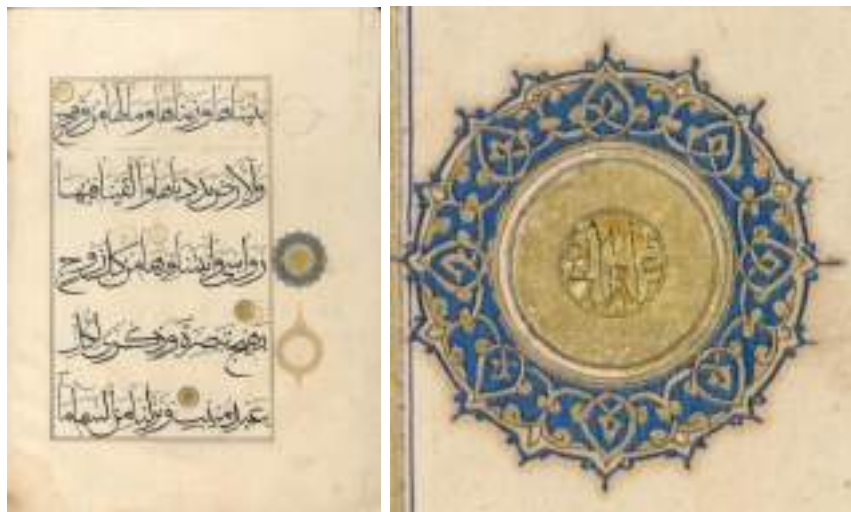 بنيناها وزيناها وما لها من فروج
والارض مددناها والقينا فيها
رواسي وانبتنا فيها من كل زوج
بهيج تبصرة وذكرى لكل
عبد منيب ونزلنا من السماء ماء